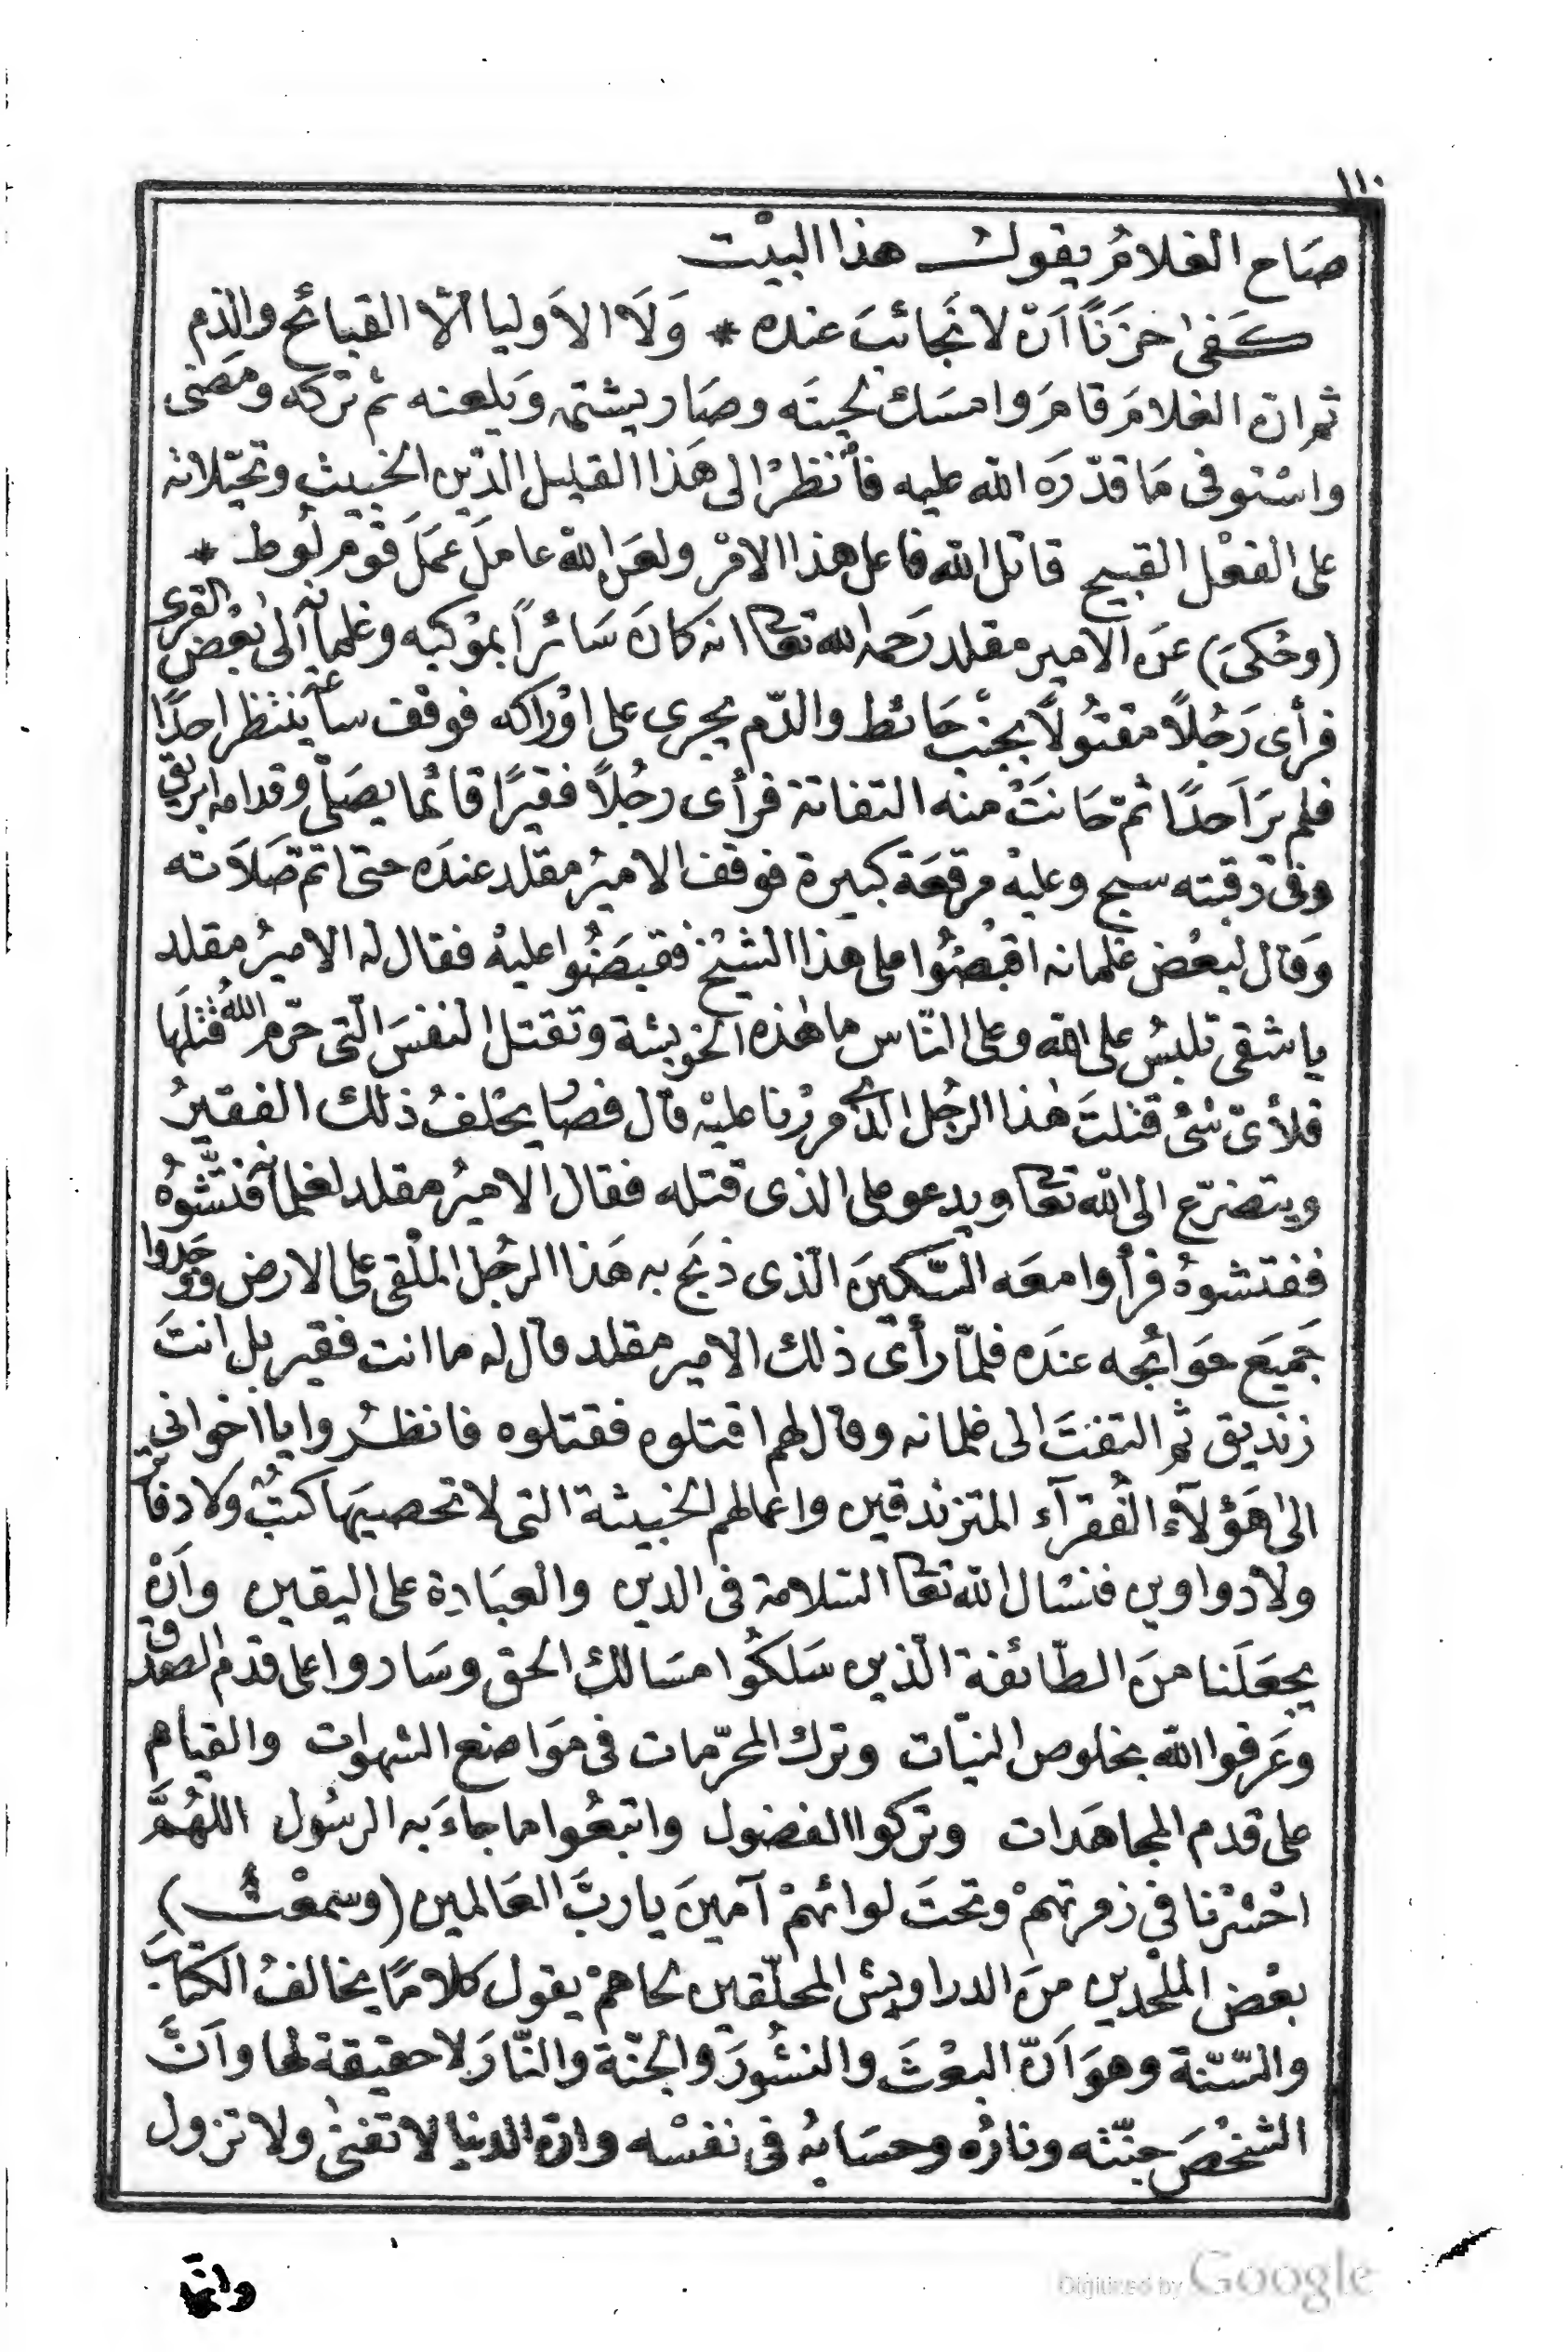 ١١٠
صَاح الغلامُ يقولُ هذا البيْت
كَفىٰ حَزَنًا اَنْ لا نجَائبَ عنده * وَلَا الاَوليا اَلّا القبائح والذم
ثم انّ الغلامَ قامَ وامسَك لحيتَه وصَار يشتمه وَيلعنه ثم تركه ومَضى
واسْتوفى مَا قدّرَه الله عليه فأنظرْ الى هَذا القليل الدّين الخبيث وتحيّلاته
على الفعْل القبيح قاتل الله فاعل هذا الامْر ولعَن الله عاملَ عَمَلَ قوْم لُوط *
(وحُكىَ) عَن الامير مقلد رَحمه الله تعالى انه كانَ سَائراً بموْكبه وغلمانه الى بعْض القرى
فرأى رَجُلاً مقتُولًا بجنْب حَائط والدّم يجرى على اوْراكه فوقف ساعة ينتظر احدًا
فلم يرَ اَحدًا ثمّ حَانَتْ منه التفاتة فرأى رجُلاً فقيرًا قائما يصَلّى وقدامه ابريق
وفى رقبته سبح وعليْه مرقعَة كبيرة فوقف الاميرُ مقلد عندَه حتى اتم صَلاَته
وَقال لبعْض غلمانه اقبْضُوا على هذا الشيْخ فقبَضُوا عليْه فقال له الاميرُ مقلد
يا شقى تلبسُ على الله وعلى النّاس ما هٰذه الخويثة وتقتل النفسَ الّتى حَرّم اللهُ قتْلَها
فلأىّ شئ قتلتَ هٰذا الرجُل الذى مررْنا عليْه قال فصَار يحْلفُ ذلك الفقيرُ
ويتضرّع الى الله تعالى ويدعو على الذى قتله فقال الاميرُ مقلد لغلمانه فتّشُوهُ
ففتشوهُ فرأوا معَه السّكينَ الّذى ذبَح به هَذا الرجُل الملْقى على الارض ووَجَدوا
جَميَع حَوائجه عندَه فلمّا رأى ذلك الامير مقلد قال له ما انت فقير بل انتَ
زنديق ثم التفتَ الى غلمانه وقال لهم اقتلوه فقتلوه فانظرُوا يا اخوانى
الىٰ هَؤلآء الفُقرآء المتزندقين واعمالهم الخبيثة التى لا تحصيها كتبٌ ولا دفاتر
ولا دواوين فنسْال الله تعالى السّلامة فى الدين والعبَادة على اليقين وأنْ
يجعَلَنا منَ الطّائفة الّذين سَلكُوا مسَالك الحق وسَاروا على قدم الصدق
وعَرفوا الله بخلوص النيّات وترك المحرّمات فى مَواضع الشهوات والقيام
على قدم المجاهَدات وتركوا الفضول واتبعُوا ما جاءَ به الرسُول اللهُمَّ
احْشرْنا فى زمرتهمْ وتحتَ لوائهمْ آمينَ يا ربَّ العَالمين (وسمعْتُ)
بعْض الملْحدين منَ الدراويش المحلّقين لحاهمْ يقول كلامًا يخالفُ الكتابَ
والسّنة وهوَ اَنّ البعْثَ والنشُورَ والجنّة والنّارَ لا حقيقة لها واَنَّ
الشخْصَ جنّته ونارُه وحسَابُه فى نفسْه وانّ الدنيا لا تفنىٰ ولا تزول
وانما
Digitized by Google